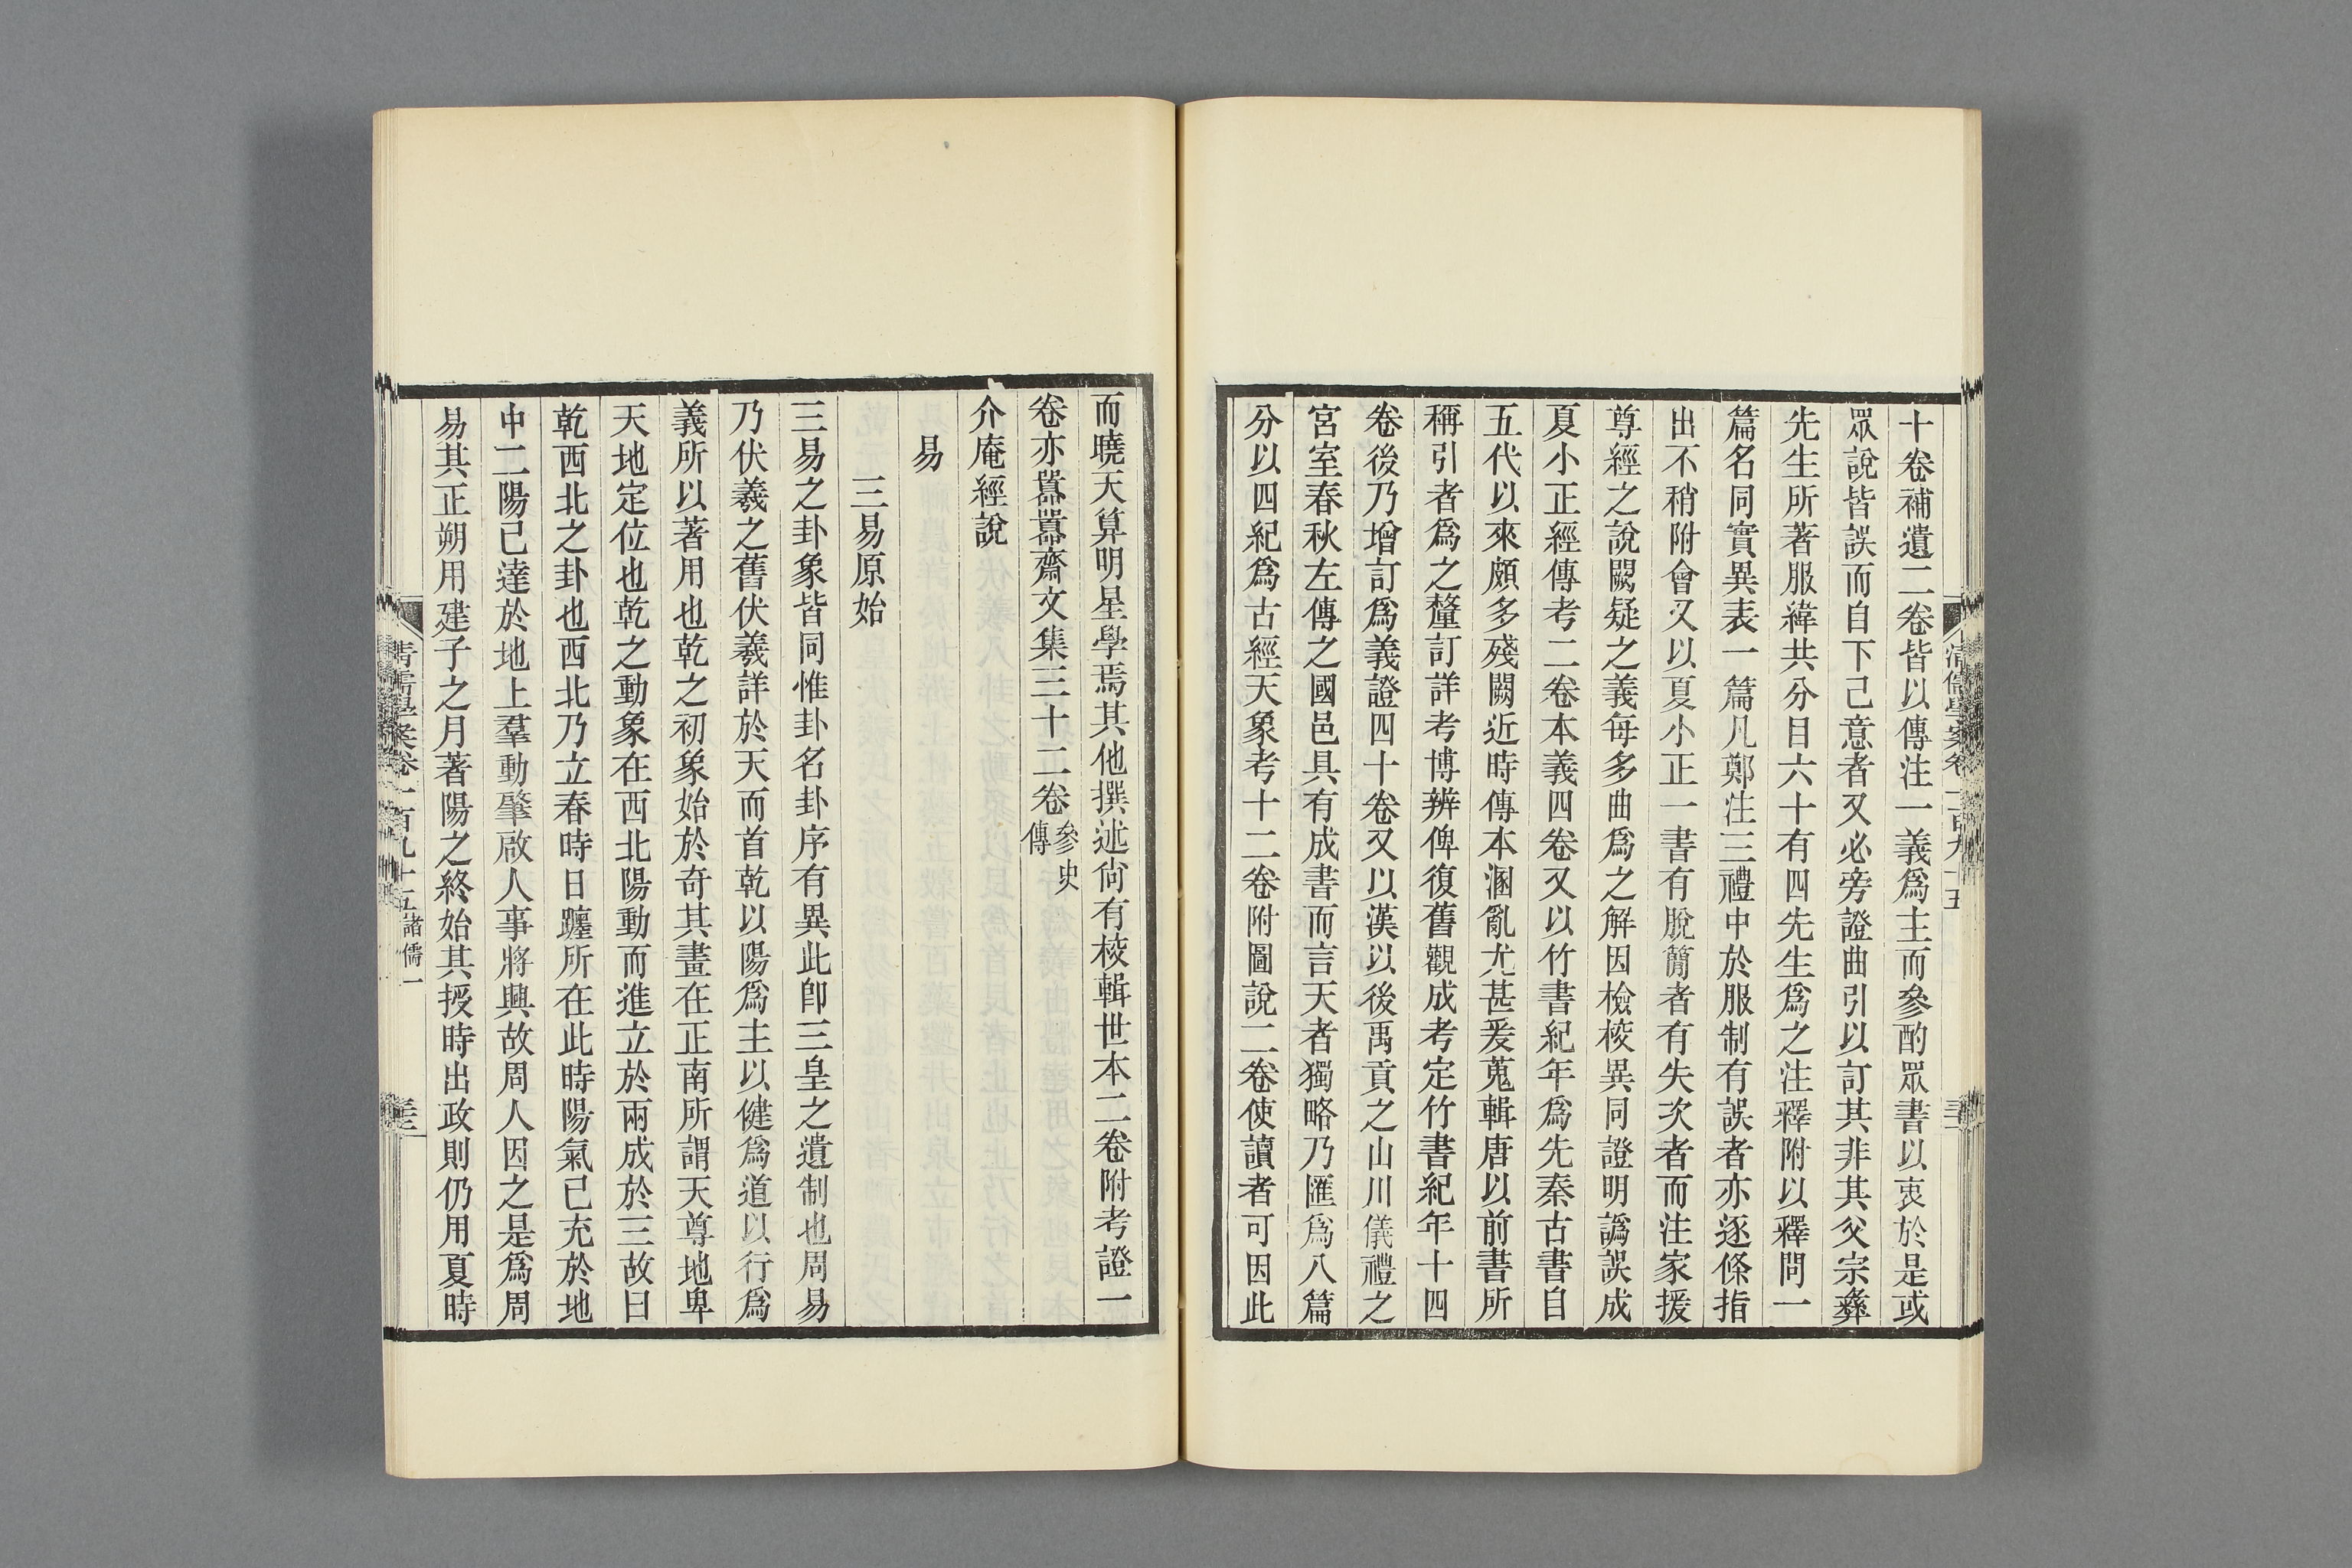 十卷補遺二卷皆以傳注一義爲主而參酌眾書以衷於是或
眾說皆誤而自下己意者又必旁證曲引以訂其非其父宗彝
先生所著服緯共分目六十有四先生爲之注釋附以釋問一
篇名同實異表一篇凡鄭注三禮中於服制有誤者亦逐條指
出不稍附會又以夏小正一書有脫簡者有失次者而注家援
尊經之說闕疑之義每多曲爲之解因檢校異同證明譌誤成
夏小正經傳考二卷本義四卷又以竹書紀年爲先秦古書自
五代以來頗多殘闕近時傳本溷亂尤甚爰蒐輯唐以前書所
稱引者爲之釐訂詳考博辨俾復舊觀成考定竹書紀年十四
卷後乃增訂爲義證四十卷又以漢以後禹貢之山川儀禮之
宮室春秋左傳之國邑具有成書而言天者獨略乃匯爲八篇
分以四紀爲古經天象考十二卷附圖說二卷使讀者可因此
清儒學案卷一百九十五
而曉天算明星學焉其他撰述尙有校輯世本二卷附考證一
卷亦囂囂齋文集三十二卷參史傳
介庵經說
易
三易原始
三易之卦象皆同惟卦名卦序有異此卽三皇之遺制也周易
乃伏羲之舊伏羲詳於天而首乾以陽爲主以健爲道以行爲
義所以著用也乾之初象始於奇其畫在正南所謂天尊地卑
天地定位也乾之動象在西北陽動而進立於兩成於三故曰
乾西北之卦也西北乃立春時日躔所在此時陽氣已充於地
中二陽已達於地上羣動肇啟人事將興故周人因之是爲周
易其正朔用建子之月著陽之終始其授時出政則仍用夏時
清儒學案卷一百九十五諸儒一